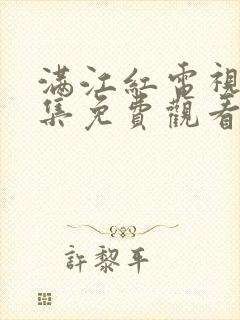 满江紅電視
集免費觀看
許黎平